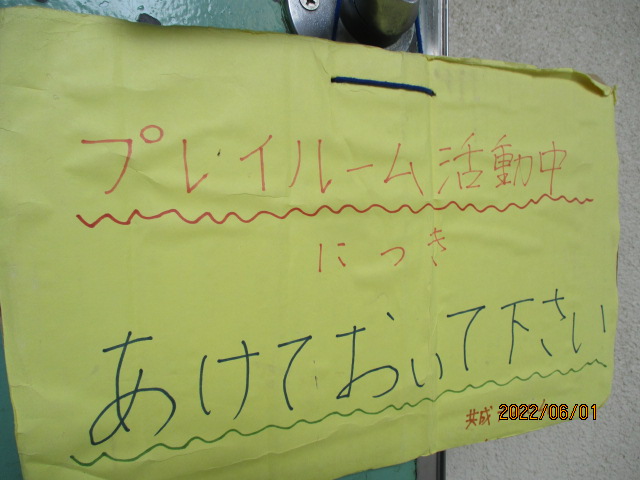 プレイルーム活動中
につき
あけておいて下さい
共成
2022/06/01